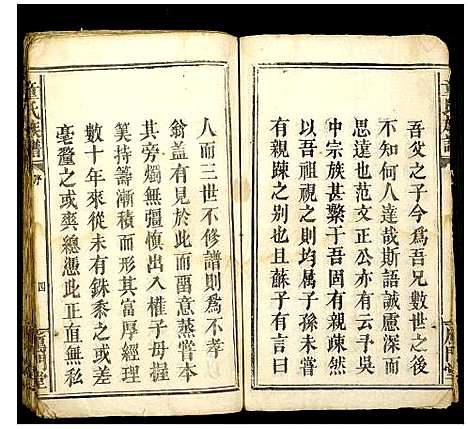 童氏族譜
吾父之子今爲吾兄數世之後
不知何人達哉斯語誠慮深而
思遠也范文正公亦有云予吳
中宗族甚繁于吾固有親疎然
以吾祖視之則均屬子孫未嘗
有親疎之别也且蘇子有言曰
人而三世不修譜則爲不孝
翁蓋有見於此而留意蒸嘗本
其旁爛無彊慎出入權子母握
筭持籌漸積而形其富厚經理
數十年來從未有銖黍之或差
毫釐之或爽總憑此正直無私
童氏族譜
序
四